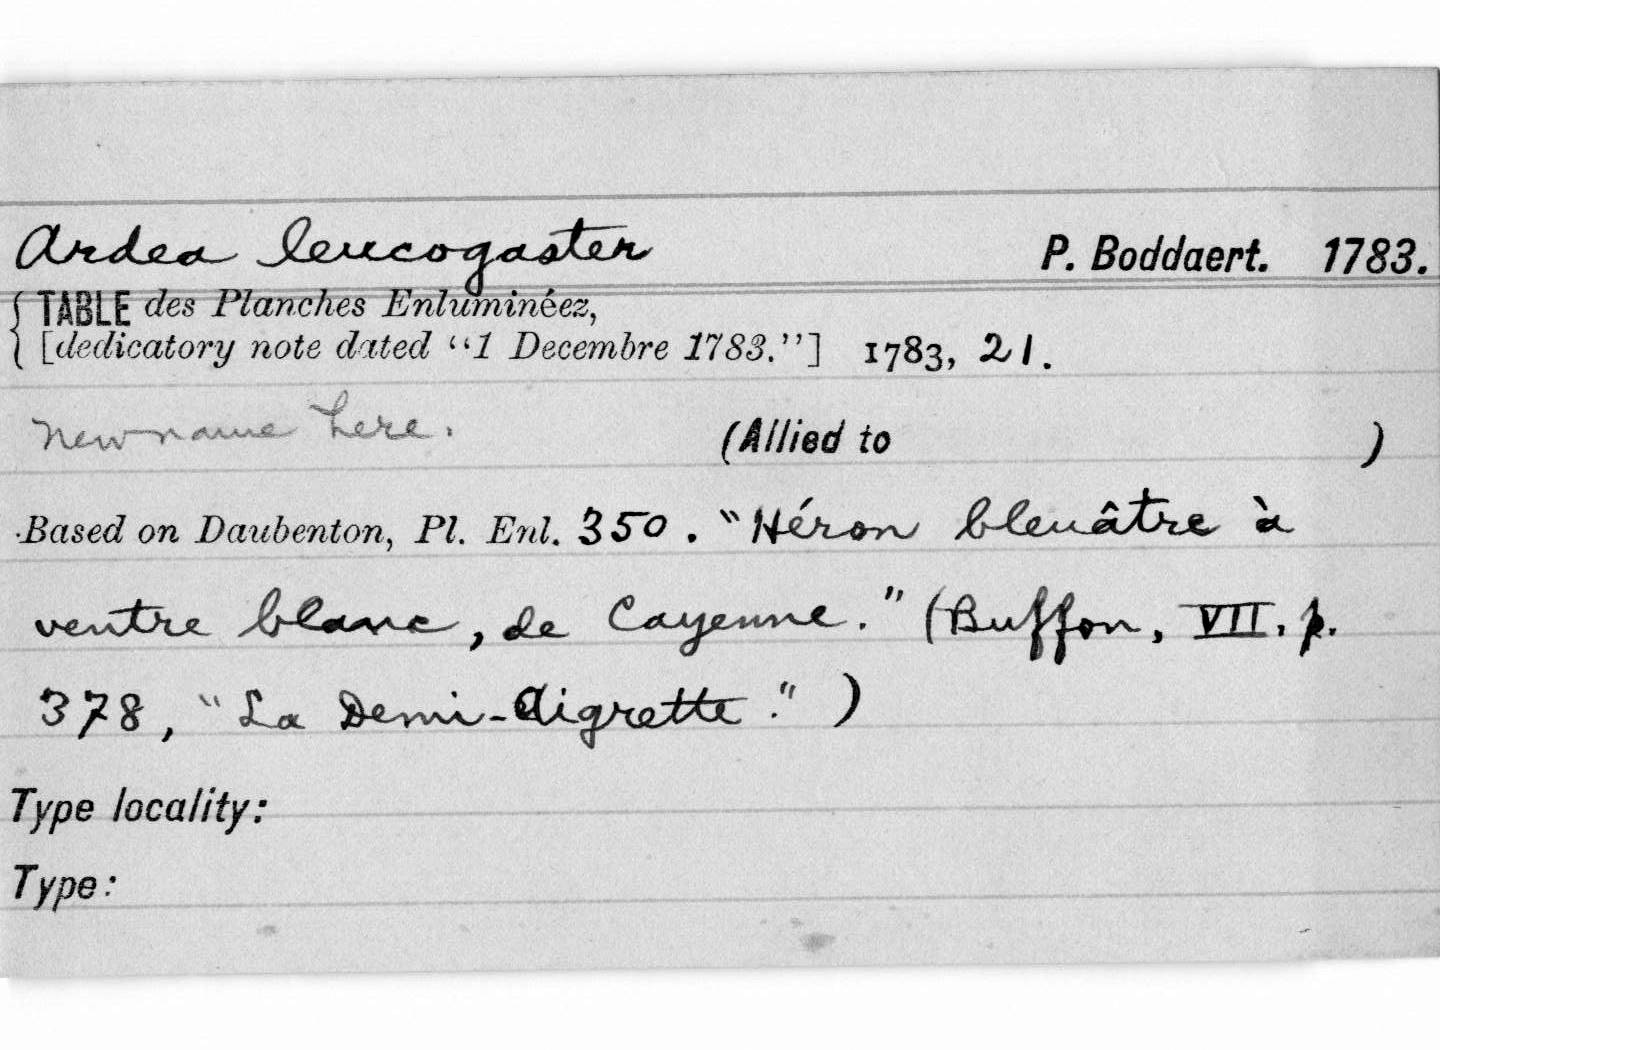 Ardea leucogaster P. Boddaert. 1783.
{ TABLE des Planches Enluminéez,
[dedicatory note dated “1 Decembre 1783.”] 1783, 21.
New name here. (Allied to )
Based on Daubenton, Pl. Enl. 350. "Héron bleuâtre à
ventre blanc, de Cayenne." (Buffon, VII, p.
378, "La Demi-Aigrette.")
Type locality:
Type: